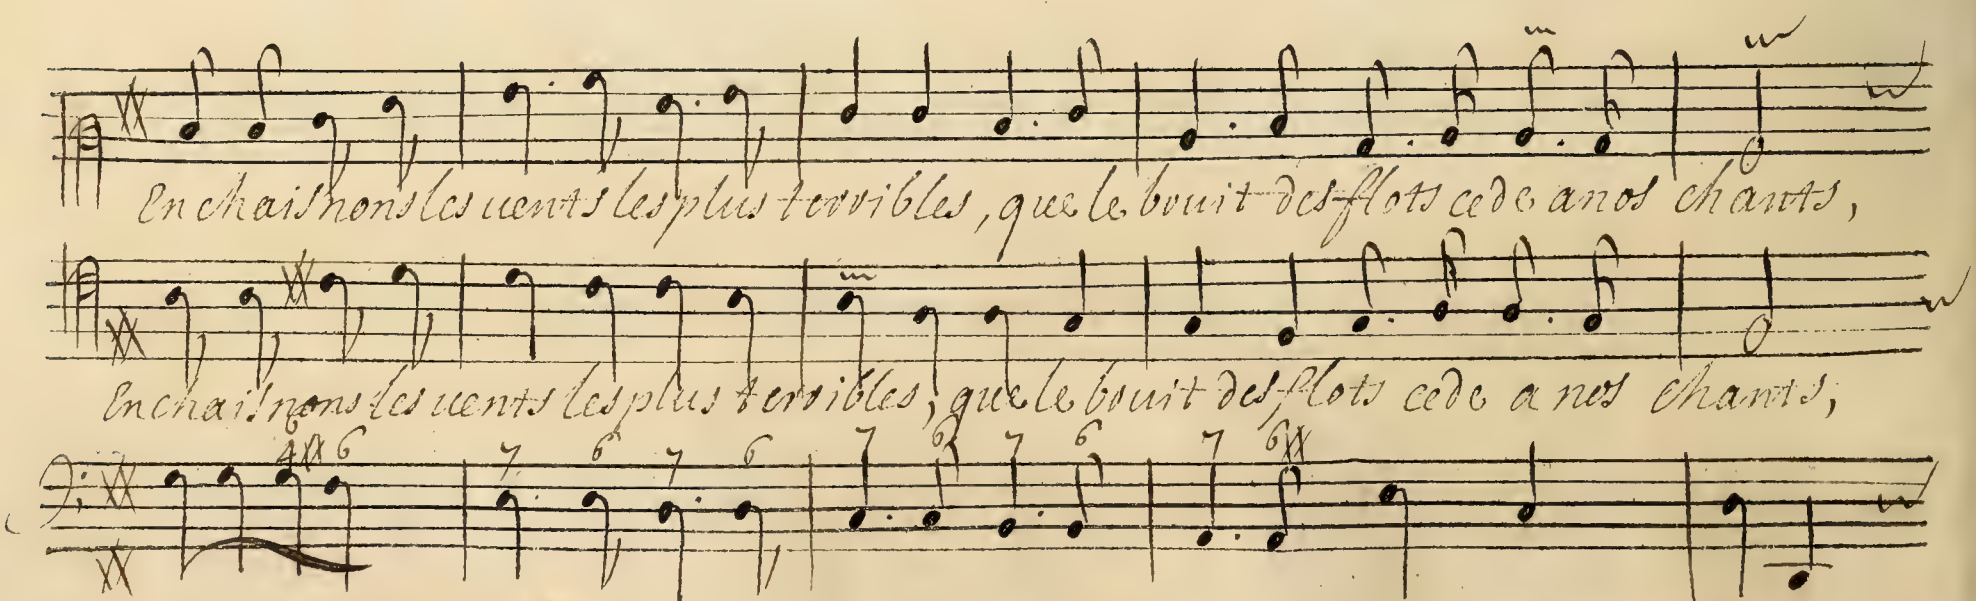 Enchaisnons les uents les plus terribles, que le bruit des flots cede a nos chants,
Enchaisnons les uents les plus terribles, que le bruit des flots cede a nos chants,
4 6 7 6 7 6 7 6 7 6 7 6